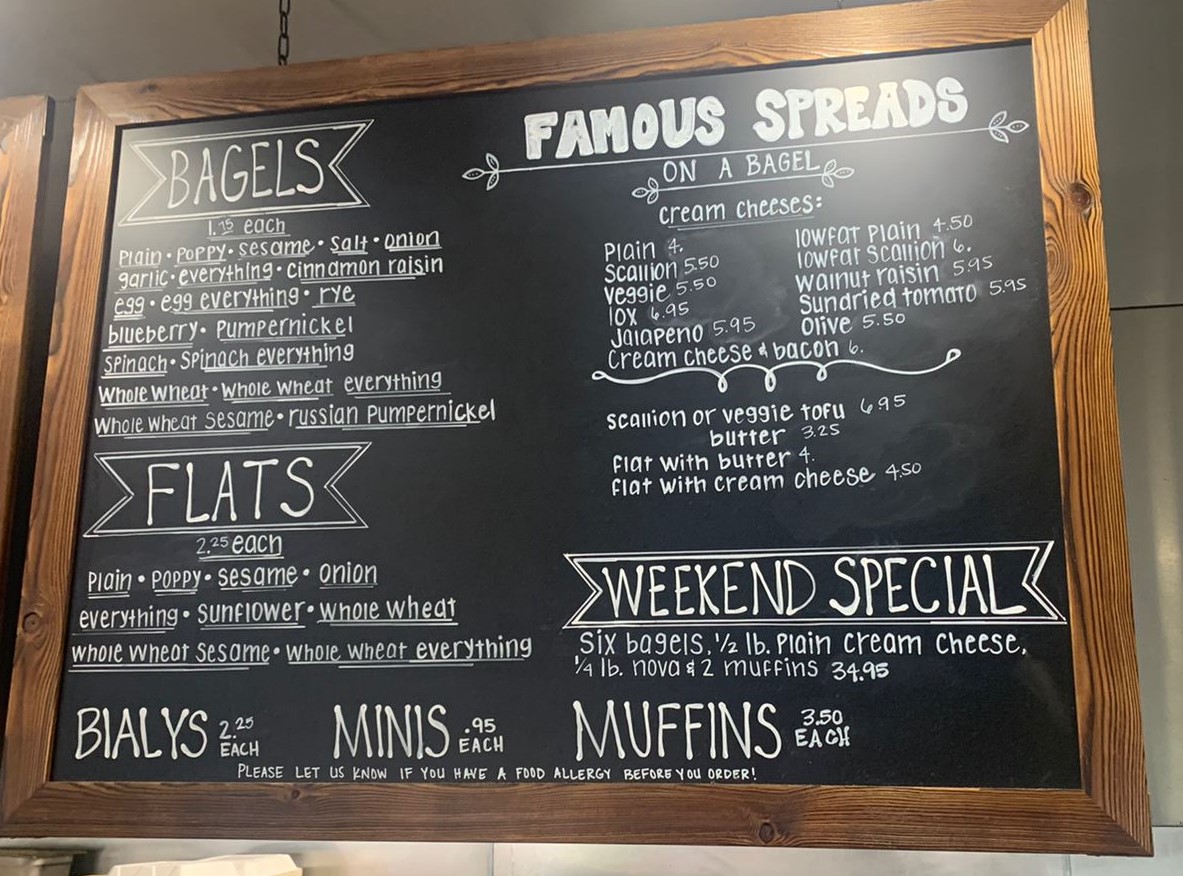 BAGELS
1.75 each
Plain • Poppy • sesame • salt • onion
garlic • everything • cinnamon raisin
egg • egg everything • rye
blueberry • Pumpernickel
Spinach • Spinach everything
Whole Wheat • Whole Wheat everything
Whole Wheat Sesame • russian Pumpernickel
FLATS
2.25 each
Plain • Poppy • sesame • onion
everything • Sunflower • whole wheat
whole wheat Sesame • whole wheat everything
FAMOUS SPREADS
ON A BAGEL
cream cheeses:
Plain 4.
Scallion 5.50
veggie 5.50
lox 6.95
Jalapeno 5.95
lowfat Plain 4.50
lowfat scallion 6.
walnut raisin 5.95
Sundried tomato 5.95
Olive 5.50
Cream cheese & bacon 6.
scallion or veggie tofu 6.95
butter 3.25
flat with butter 4.
flat with cream cheese 4.50
WEEKEND SPECIAL
Six bagels, 1/2 lb. Plain Cream Cheese,
1/4 lb. nova & 2 muffins 34.95
BIALYS 2.25 EACH
MINIS .95 EACH
MUFFINS 3.50 EACH
PLEASE LET US KNOW IF YOU HAVE A FOOD ALLERGY BEFORE YOU ORDER!